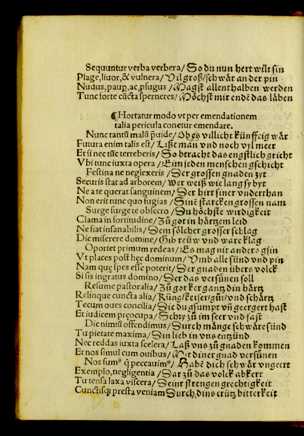 Sequuntur verba verbera/ So du nun hert wilt sin
Plage, liuor, & vulnera/ Vil groß/schwär an der pin
Nudus, paup, ac pfugus/ Magst allenthalben werden
Tunc forte cūcta spernetes/ Möchst mit ende das läben
¶ Hortatur modo vt per emendationem
talia pericula conetur emendare.
Nunc tanti malī guide/ Ob es villicht künfftig wär
Futura enim talis est/ Lißt man vnd noch vyl meer
Et si nec iste terreberis/ So betracht das engstlich gricht
Vbi tunc iuxta opera/ Eim ieden menschen gschicht
Festina ne neglexeris/ Der grossen gnaden zyt
Securis stat ad arborem/ Wer weiß wie lang sy byt
Ne a te querat sanguinem/ Der hirt siner vnderthan
Non erit tunc quo fugias/ Sine starcken grossen nam
Surge surge te obsecro/ Du höchste wirdigkeit
Clama in fortitudine/ Zů got in härtzem leid
Ne fiat insanabilis/ Dem sölcher grosser schlag
Dic miserere domine/ Gib rüw vnd ware klag
Oportet primum redeas/ Es mag nit anders gsin
Vt places post hec dominum/ Vmb alle sünd vnd pin
Nam que ipes esse poterit/ Der gnaden übers volck
Si sis ingratus domino/ Der das versünen soll
Resume pastoralia/ Zů got ker gantz din härtz
Relinque cuncta alia/ Küng/keiser/gůt/vnd schärtz
Tecum oues concilia/ Die du gsumpt vñ geergert hast
Et iudicem preoccupa/ Sehtz yz im seer vnd fast
Die nimis offendimus/ Durch mänge schwäre sünd
Tu pietate maxima/ Sin lieb in vns entzünd
Nec reddas iuxta scelera/ Laß vns zů gnaden kommen
Et nos simul cum ouibus/ Mit diner gnad versünen
Nos sum° q̄ peccauim°/ Habē dich schwär vngeert
Exemplo, negligentia/ Dar zů das volck abkert
Tu tensa laxa viscera/ Seint strengen grechtigkeit
Cunctisq; presta veniam/ Durch dins crütz bitterkeit